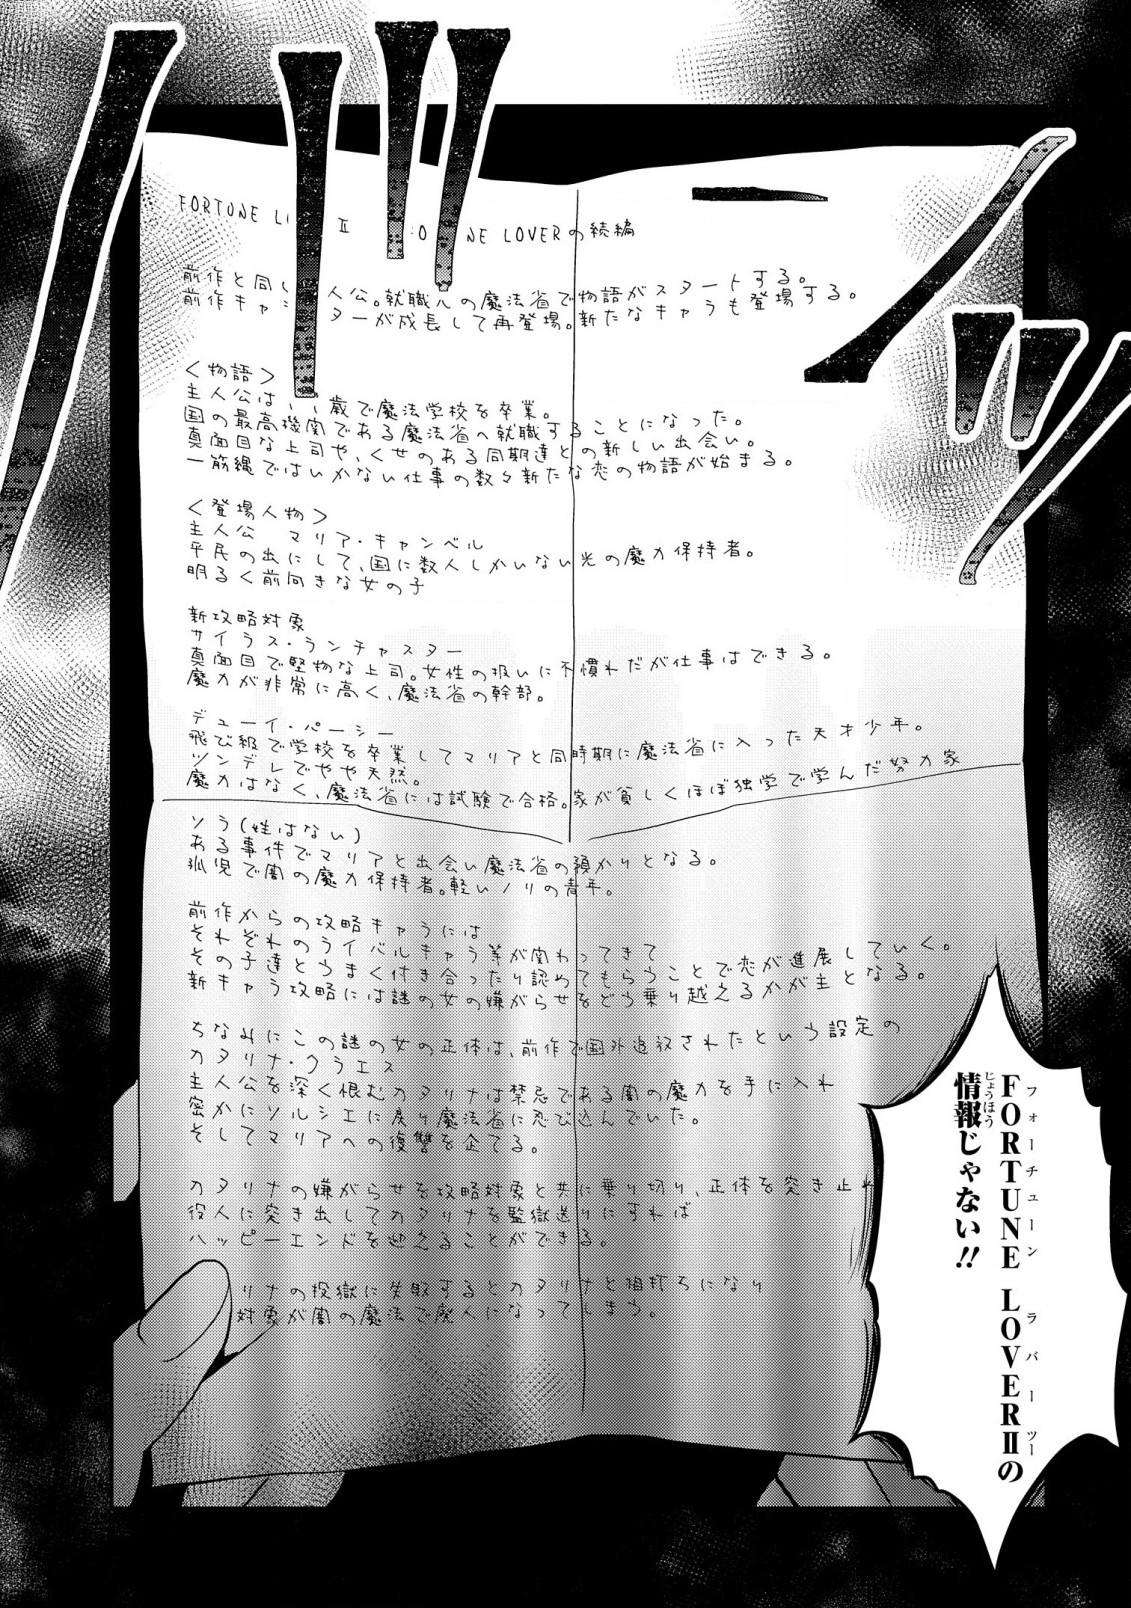 FORTUNE L II NE LOVERの続編
前作と同じ 人公。就職先の魔法省で物語がスタートする。
前作キャ ターが成長して再登場。新たなキャラも登場する。
<物語>
主人公は 歳で魔法学校を卒業。
国の最高機関である魔法省へ就職することになった。
真面目な上司や、くせのある同期達との新しい出会い。
一筋縄ではいかない仕事の数々新たな恋の物語が始まる。
<登場人物>
主人公 マリア・キャンベル
平民の出にして、国に数人しかいない光の魔力保持者。
明るく前向きな女の子
新攻略対象
サイラス・ランチャスター
真面目で堅物な上司。女性の扱いに不慣れだが仕事はできる。
魔力が非常に高く、魔法省の幹部。
デューイ・パーシー
飛び級で学校を卒業してマリアと同時期に魔法省に入った天才少年。
ツンデレでやや天然。
魔力はなく、魔法省には試験で合格。家が貧しくほぼ独学で学んだ努力家
ソラ(性はない)
ある事件でマリアと出会い魔法省の預かりとなる。
孤児で闇の魔力保持者。軽いノリの青年。
前作からの攻略キャラには
それぞれのライバルキャラ等が関わってきて
その子達とうまく付き合ったり認めてもらうことで恋が進展していく。
新キャラ攻略には謎の女の嫌がらせをどう乗り越えるかが主となる。
ちなみにこの謎の女の正体は、前作で国外追放されたという設定の
カタリナ・クラエス
主人公を深く恨むカタリナは禁忌である闇の魔力を手に入れ
密かにソルシエに戻り魔法省に忍び込んでいた。
そしてマリアへの復讐を企てる。
カタリナの嫌がらせを攻略対象と共に乗り切り、正体を突き止め
役人に突き出してカタリナを監獄送りにすれば
ハッピーエンドを迎えることができる。
リナの投獄に失敗するとカタリナと相打ちになり
対象が闇の魔法で廃人になってしまう。
FORTUNE LOVERⅡの
フォーチューン ラバー ツー
情報じゃない!!
じょうほう